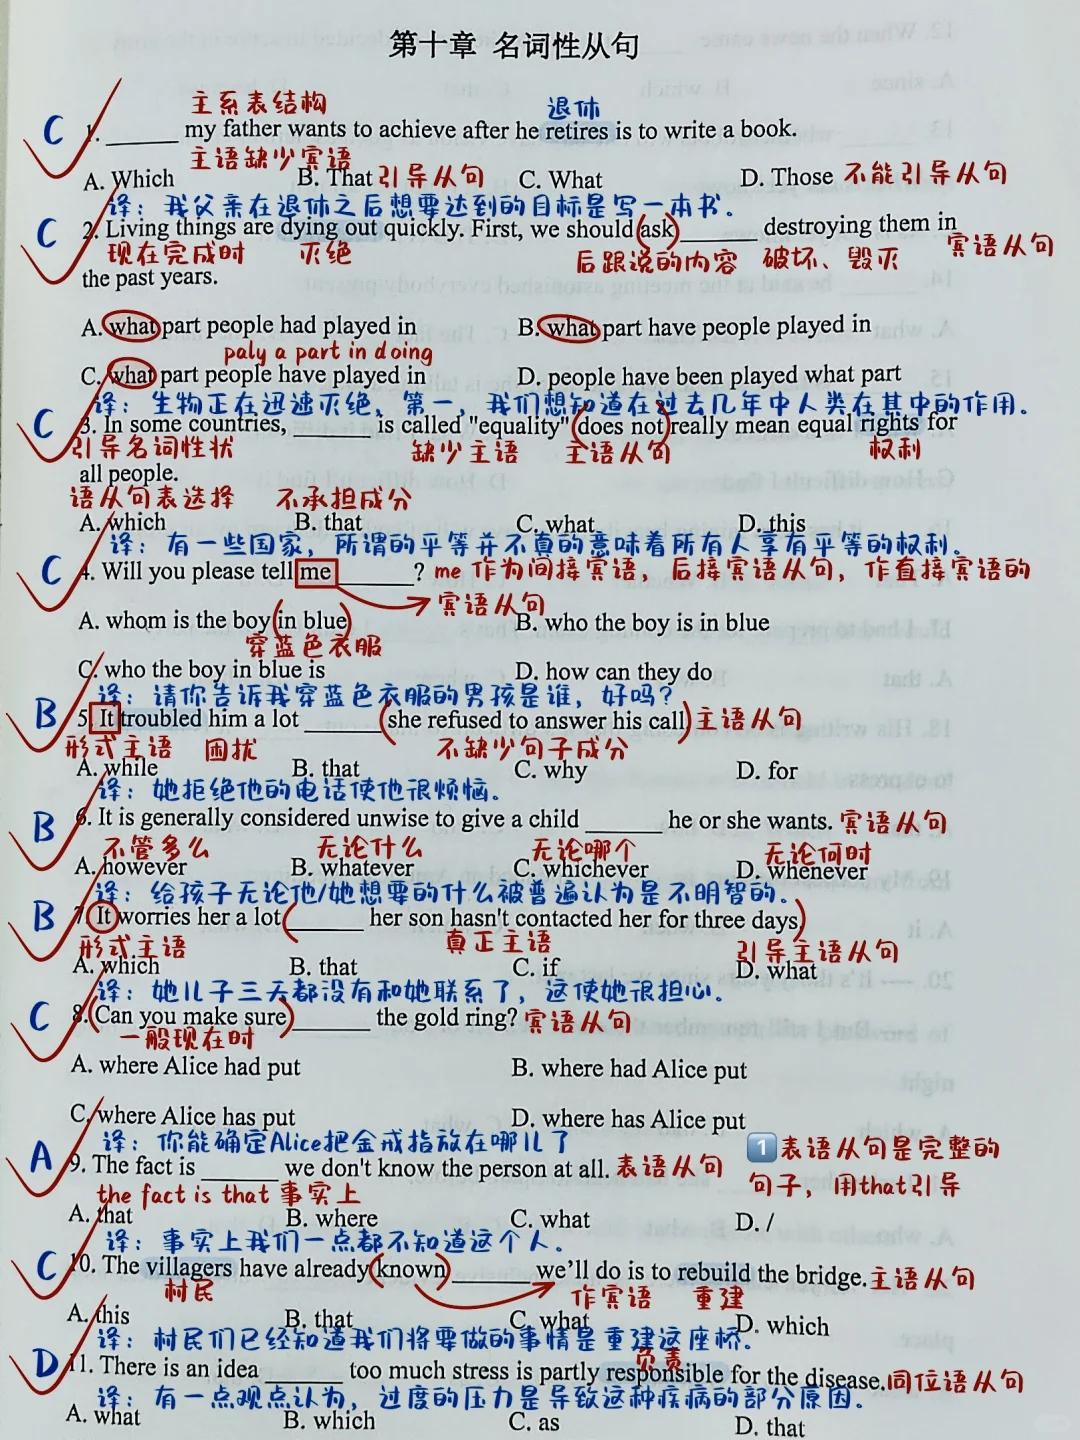 第十章 名词性从句
主系表结构 退休
C 1. ______ my father wants to achieve after he retires is to write a book.
主语缺少宾语
A. Which B. That 引导从句 C. What D. Those 不能引导从句
译：我父亲在退休之后想要达到的目标是写一本书。
C 2. Living things are dying out quickly. First, we should ask ______ destroying them in
现在完成时 灭绝 后跟说的内容 破坏、毁灭 宾语从句
the past years.
A. what part people had played in B. what part have people played in
paly a part in doing
C. what part people have played in D. people have been played what part
译：生物正在迅速灭绝，第一，我们想知道在过去几年中人类在其中的作用。
C 3. In some countries, ______ is called "equality" does not really mean equal rights for
引导名词性状 缺少主语 主语从句 权利
all people.
语从句表选择 不承担成分
A. which B. that C. what D. this
译：有一些国家，所谓的平等并不真的意味着所有人享有平等的权利。
C 4. Will you please tell me ______? me 作为间接宾语，后接宾语从句，作直接宾语的
宾语从句
A. whom is the boy in blue B. who the boy is in blue
穿蓝色衣服
C. who the boy in blue is D. how can they do
译：请你告诉我穿蓝色衣服的男孩是谁，好吗？
B 5. It troubled him a lot ______ she refused to answer his call 主语从句
形式主语 困扰 不缺少句子成分
A. while B. that C. why D. for
译：她拒绝他的电话使他很烦恼。
B 6. It is generally considered unwise to give a child ______ he or she wants. 宾语从句
不管多么 无论什么 无论哪个 无论何时
A. however B. whatever C. whichever D. whenever
译：给孩子无论他/她想要的什么被普遍认为是不明智的。
B 7. It worries her a lot ______ her son hasn't contacted her for three days
形式主语 真正主语 引导主语从句
A. which B. that C. if D. what
译：她儿子三天都没有和她联系了，这使她很担心。
C 8. Can you make sure ______ the gold ring? 宾语从句
一般现在时
A. where Alice had put B. where had Alice put
C. where Alice has put D. where has Alice put
译：你能确定Alice把金戒指放在哪儿了
1 表语从句是完整的
A 9. The fact is ______ we don't know the person at all. 表语从句 句子，用that引导
the fact is that 事实上
A. that B. where C. what D. /
译：事实上我们一点都不知道这个人。
C 10. The villagers have already known ______ we’ll do is to rebuild the bridge. 主语从句
村民 作宾语 重建
A. this B. that C. what D. which
译：村民们已经知道我们将要做的事情是重建这座桥。
负责
D 11. There is an idea ______ too much stress is partly responsible for the disease. 同位语从句
译：有一点观点认为，过度的压力是导致这种疾病的部分原因。
A. what B. which C. as D. that